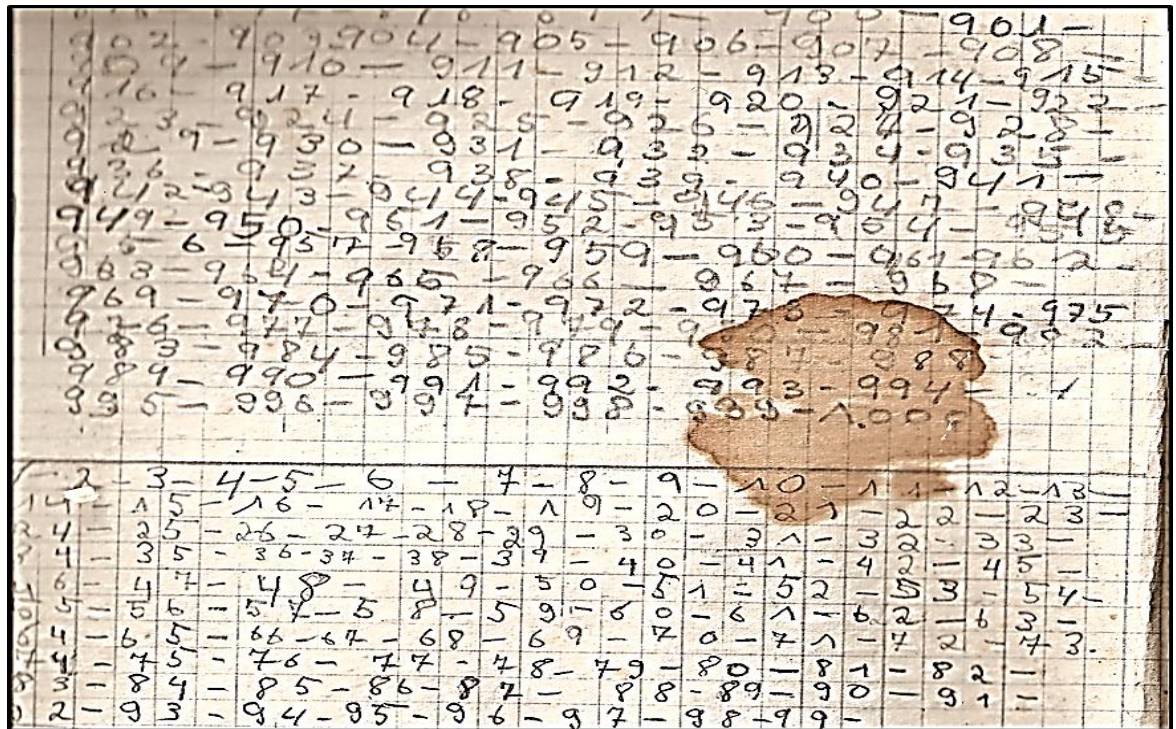 901-
902-903-904-905-906-907-908-
909-910-911-912-913-914-915
916-917-918-919-920-921-922-
923-924-925-926-927-928-
929-930-931-933-934-935-
936-937-938-939-940-941-
942-943-944-945-946-947-948-
949-950-951-952-953-954-
6-957-958-959-960-961-962-
963-964-965-966-967-968-
969-970-971-972-973-974-975
976-977-978-979-981-982-
983-984-985-986-987-988-
989-990-991-992-993-994-1
995-996-997-998-999-1.000
2-3-4-5-6-7-8-9-10-11-12-13-
14-15-16-17-18-19-20-21-22-23-
24-25-26-27-28-29-30-31-32-33-
34-35-36-37-38-39-40-41-42-45-
6-47-48-49-50-51-52-53-54-
5-56-57-58-59-60-61-62-63-
64-65-66-67-68-69-70-71-72-73.
74-75-76-77-78-79-80-81-82-
83-84-85-86-87-88-89-90-91-
92-93-94-95-96-97-98-99-